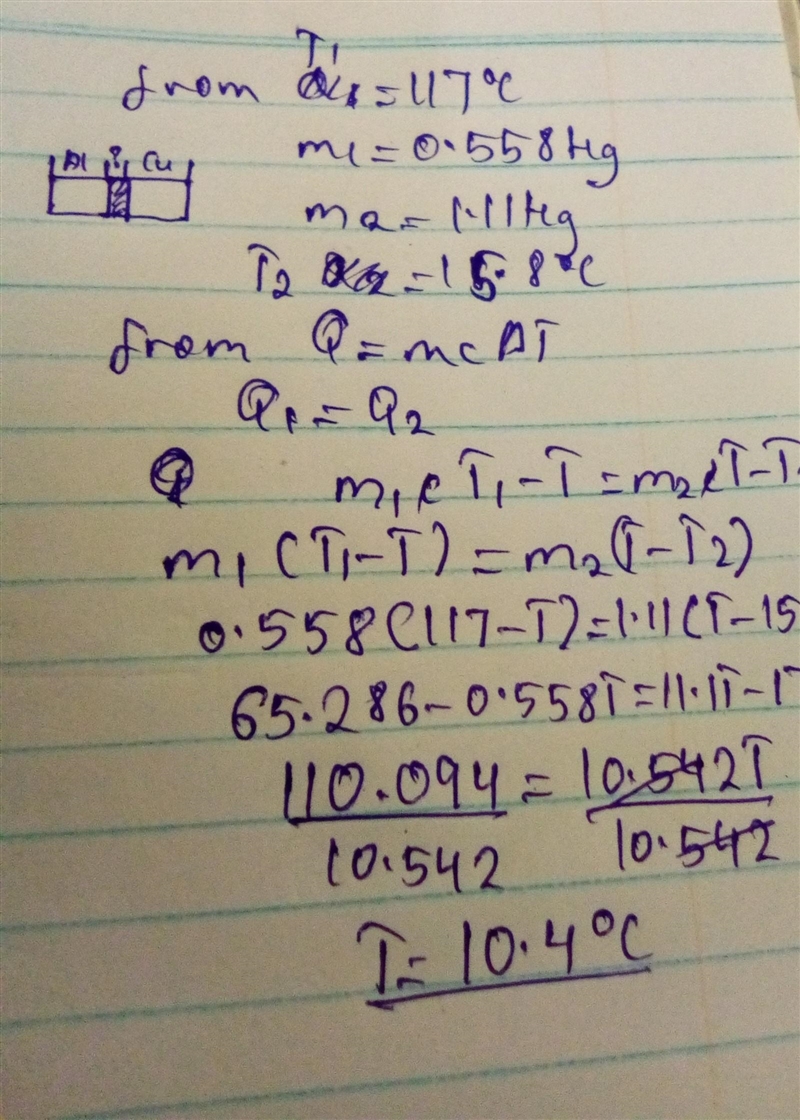 T1
from =117°C
m1=0.558Kg
Al Cu
m2=1.11Kg
T2 =15.8°C
from Q=mcΔT
Q1=Q2
Q m1c T1-T=m2c T-T
m1(T1-T)=m2(T-T2)
0.558(117-T)=1.11(T-15
65.286-0.558T=11.1T-1
110.094=10.542T
10.542 10.542
T=10.4°C